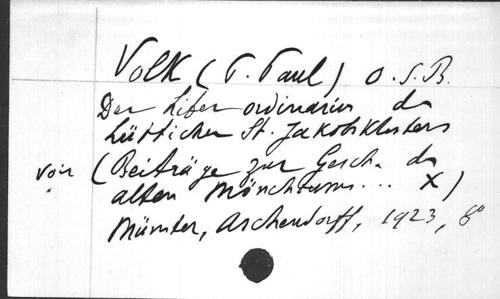 Volk (P. Paul) O.S.B.
Der Liber ordinarius des
Lütticher St. Jakobsklosters
voir (Beiträge zur Gesch. des
alten Mönchtums... X)
Münster, Aschendorff, 1923, 8°